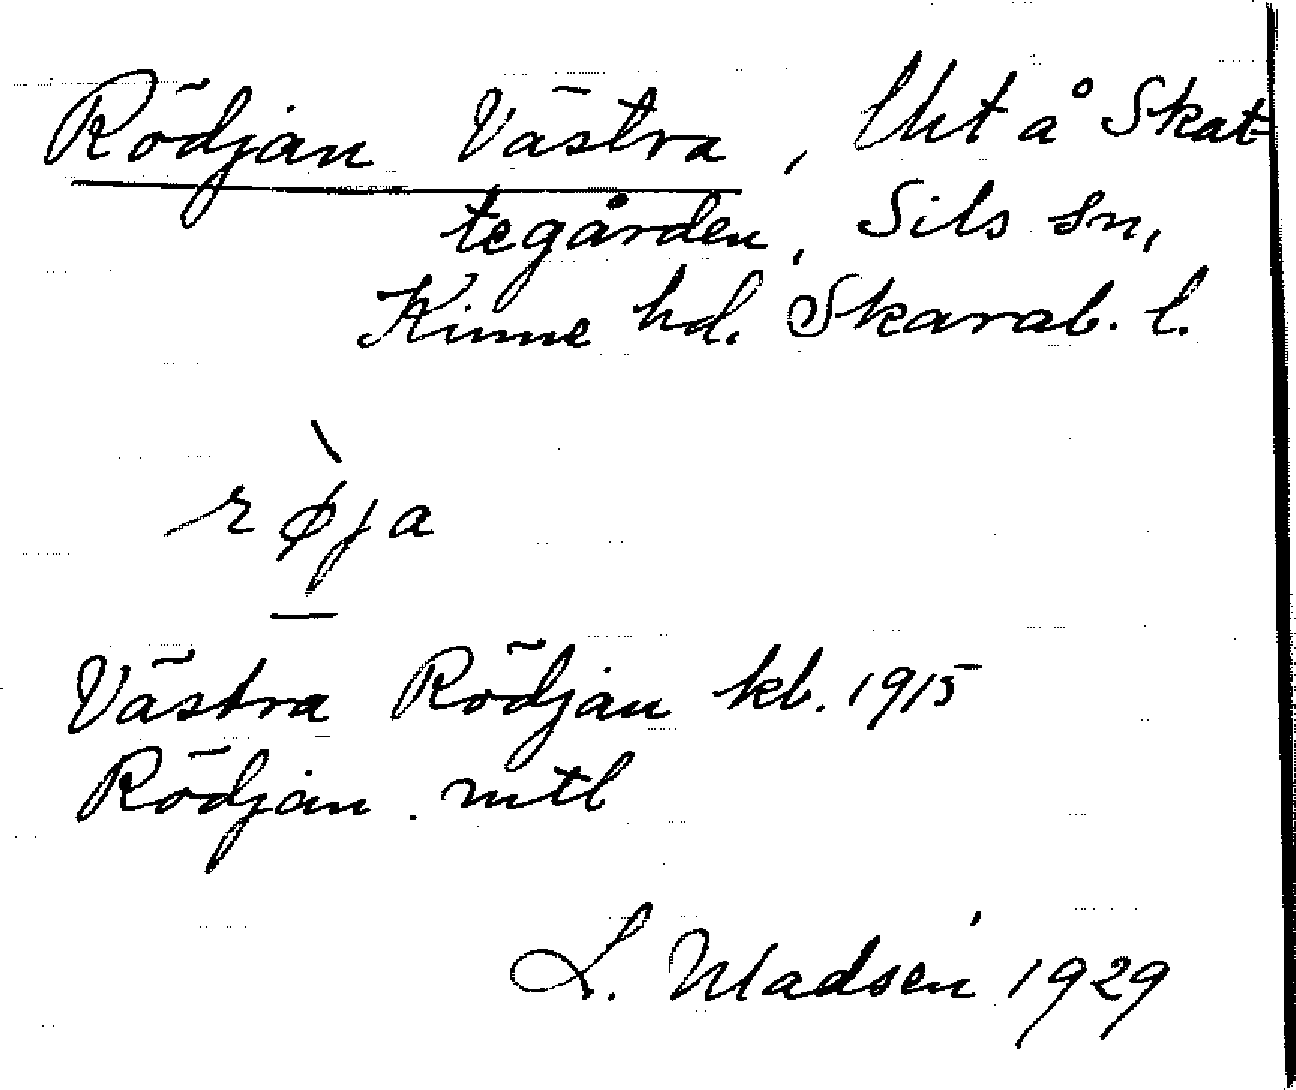 Rödjan Västra, Uxt å Skat-
tegården, Sils sn,
Kinne hd. Skarab. l.
røja
Västra Rödjan kb. 1915
Rödjan. mtl
L. Madsén 1929